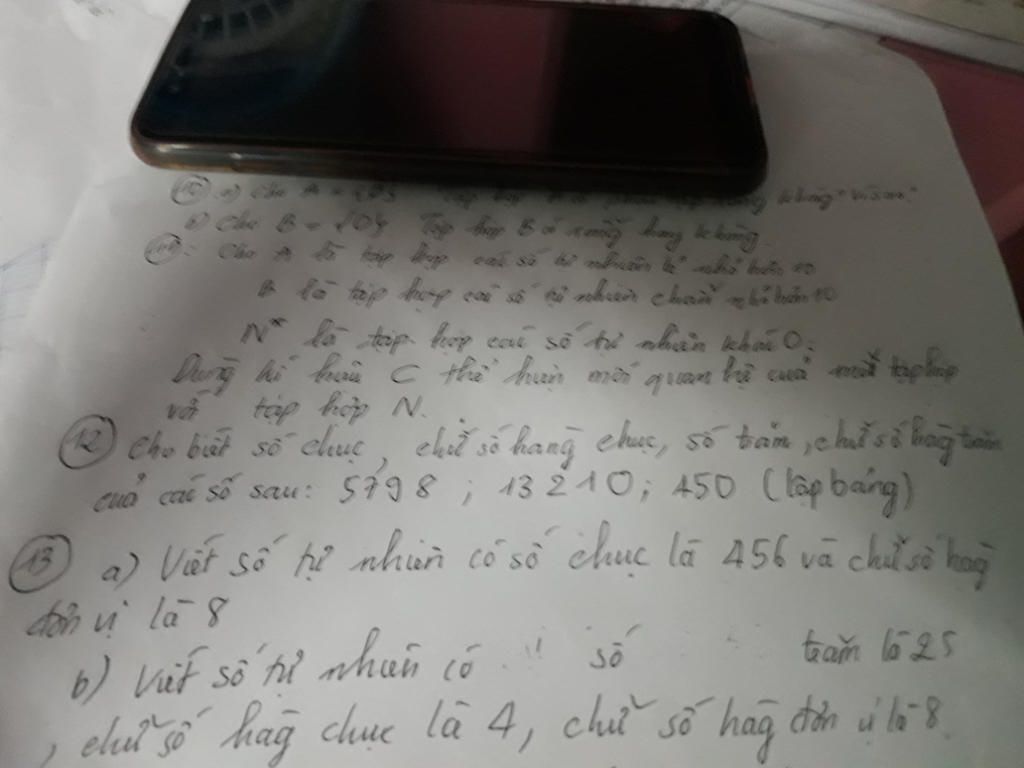 (10) a) Cho A = {0} Tập hợp A có hay không? Vì sao?
b) Cho B = {0}. Tập hợp B có rỗng hay không
(11): Cho A là tập hợp các số tự nhiên nhỏ hơn 10
B là tập hợp các số tự nhiên chẵn nhỏ hơn 10
N* là tập hợp các số tự nhiên khác 0.
Dùng kí hiệu ⊂ thể hiện mối quan hệ của mỗi tập hợp
với tập hợp N.
(12) Cho biết số chục, chữ số hàng chục, số trăm, chữ số hàg trăm
của các số sau: 5798; 13210; 450 (lập bảng)
(13) a) Viết số tự nhiên có số chục là 456 và chữ số hàg
đơn vị là 8
b) Viết số tự nhiên có số trăm là 25
, chữ số hàg chục là 4, chữ số hàg đơn vị là 8.